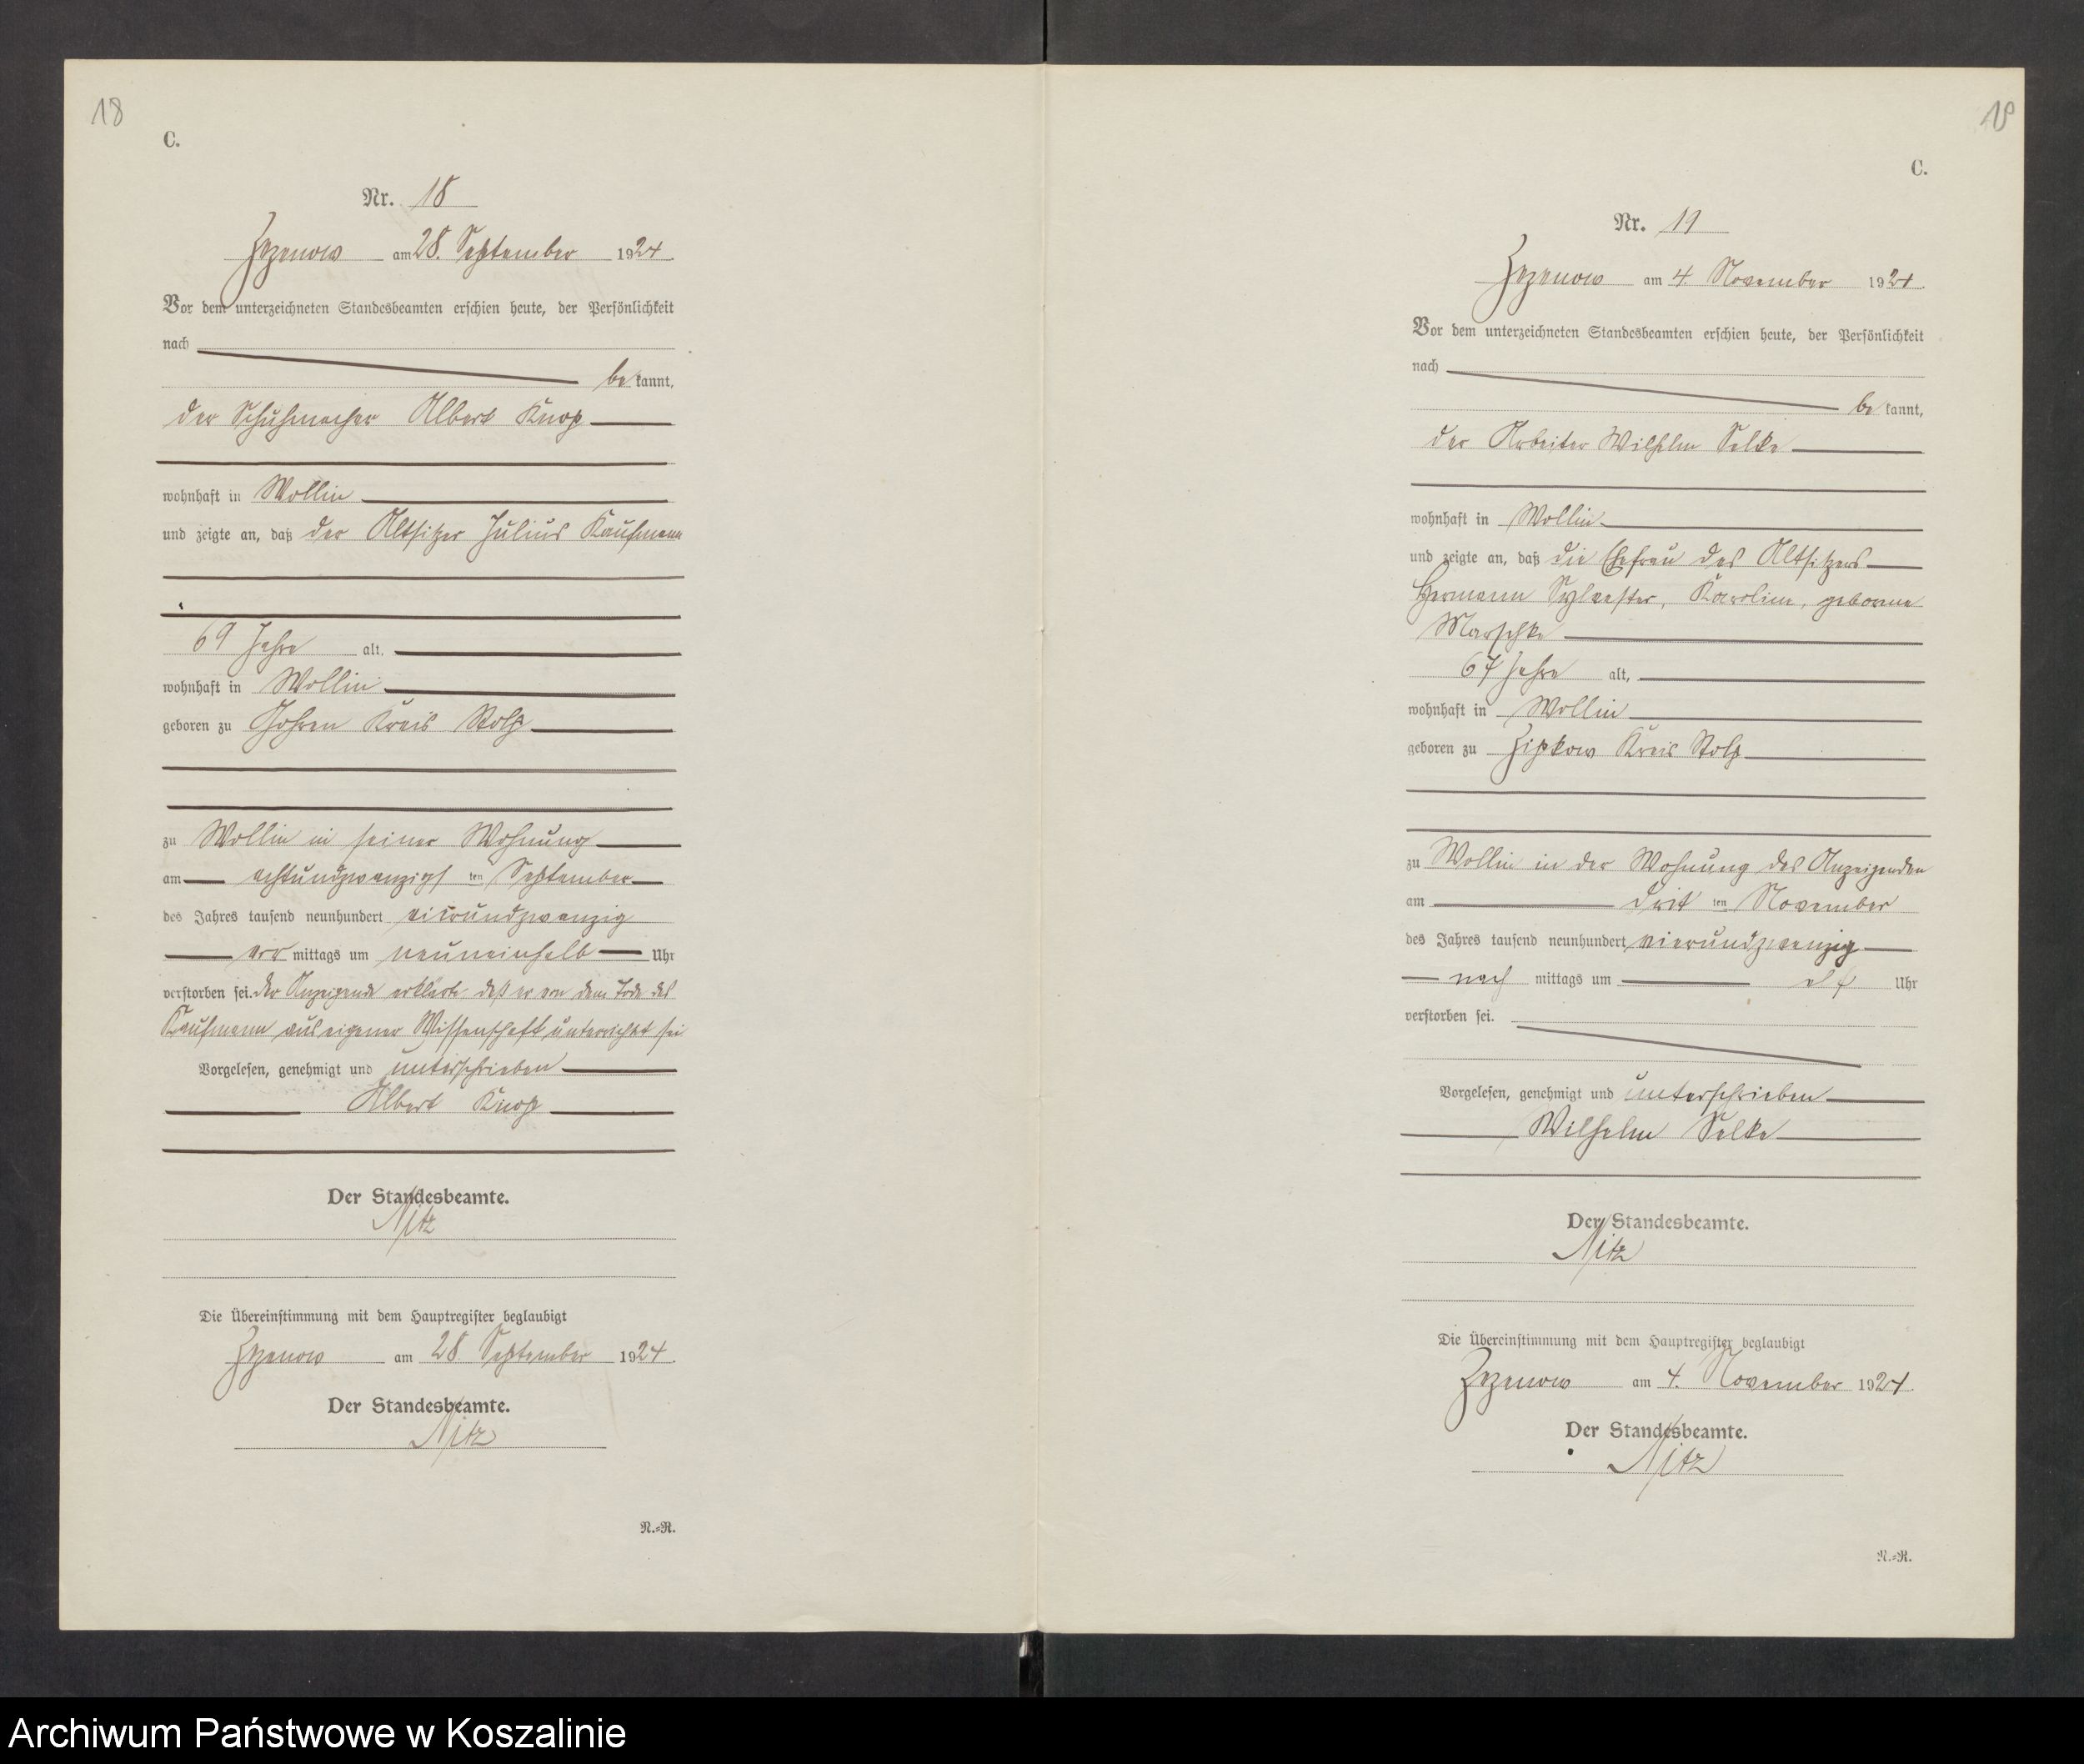 18
C.
Nr. 18
Zezenow am 28. September 1924.
Vor dem unterzeichneten Standesbeamten erschien heute, der Persönlichkeit
nach
be kannt,
der Schuhmacher Albert Knop
wohnhaft in Wollin
und zeigte an, daß der Altsitzer Julius Kaufmann
69 Jahre alt,
wohnhaft in Wollin
geboren zu Gohren Kreis Stolp
zu Wollin in seiner Wohnung
am achtundzwanzigs ten September
des Jahres tausend neunhundert vierundzwanzig
vor mittags um neuneinhalb Uhr
verstorben sei. Der Anzeigende erklärte, daß er von dem Tode des
Kaufmann aus eigener Wissenschaft unterrichtet sei
Vorgelesen, genehmigt und unterschrieben
Albert Knop
Der Standesbeamte.
Nitz
Die Übereinstimmung mit dem Hauptregister beglaubigt
Zezenow am 28 September 1924.
Der Standesbeamte.
Nitz
N.=R.
19
C.
Nr. 19
Zezenow am 4. November 1924.
Vor dem unterzeichneten Standesbeamten erschien heute, der Persönlichkeit
nach
be kannt,
der Arbeiter Wilhelm Selke
wohnhaft in Wollin
und zeigte an, daß die Ehefrau des Altsitzers
Hermann Sylvester, Karoline, geborene
Marschke
67 Jahre alt,
wohnhaft in Wollin
geboren zu Zipkow Kreis Stolp
zu Wollin in der Wohnung des Anzeigenden
am drit ten November
des Jahres tausend neunhundert vierundzwanzig
nach mittags um elf Uhr
verstorben sei.
Vorgelesen, genehmigt und unterschrieben
Wilhelm Selke
Der Standesbeamte.
Nitz
Die Übereinstimmung mit dem Hauptregister beglaubigt
Zezenow am 4. November 1924.
Der Standesbeamte.
Nitz
N.=R.
Archiwum Państwowe w Koszalinie